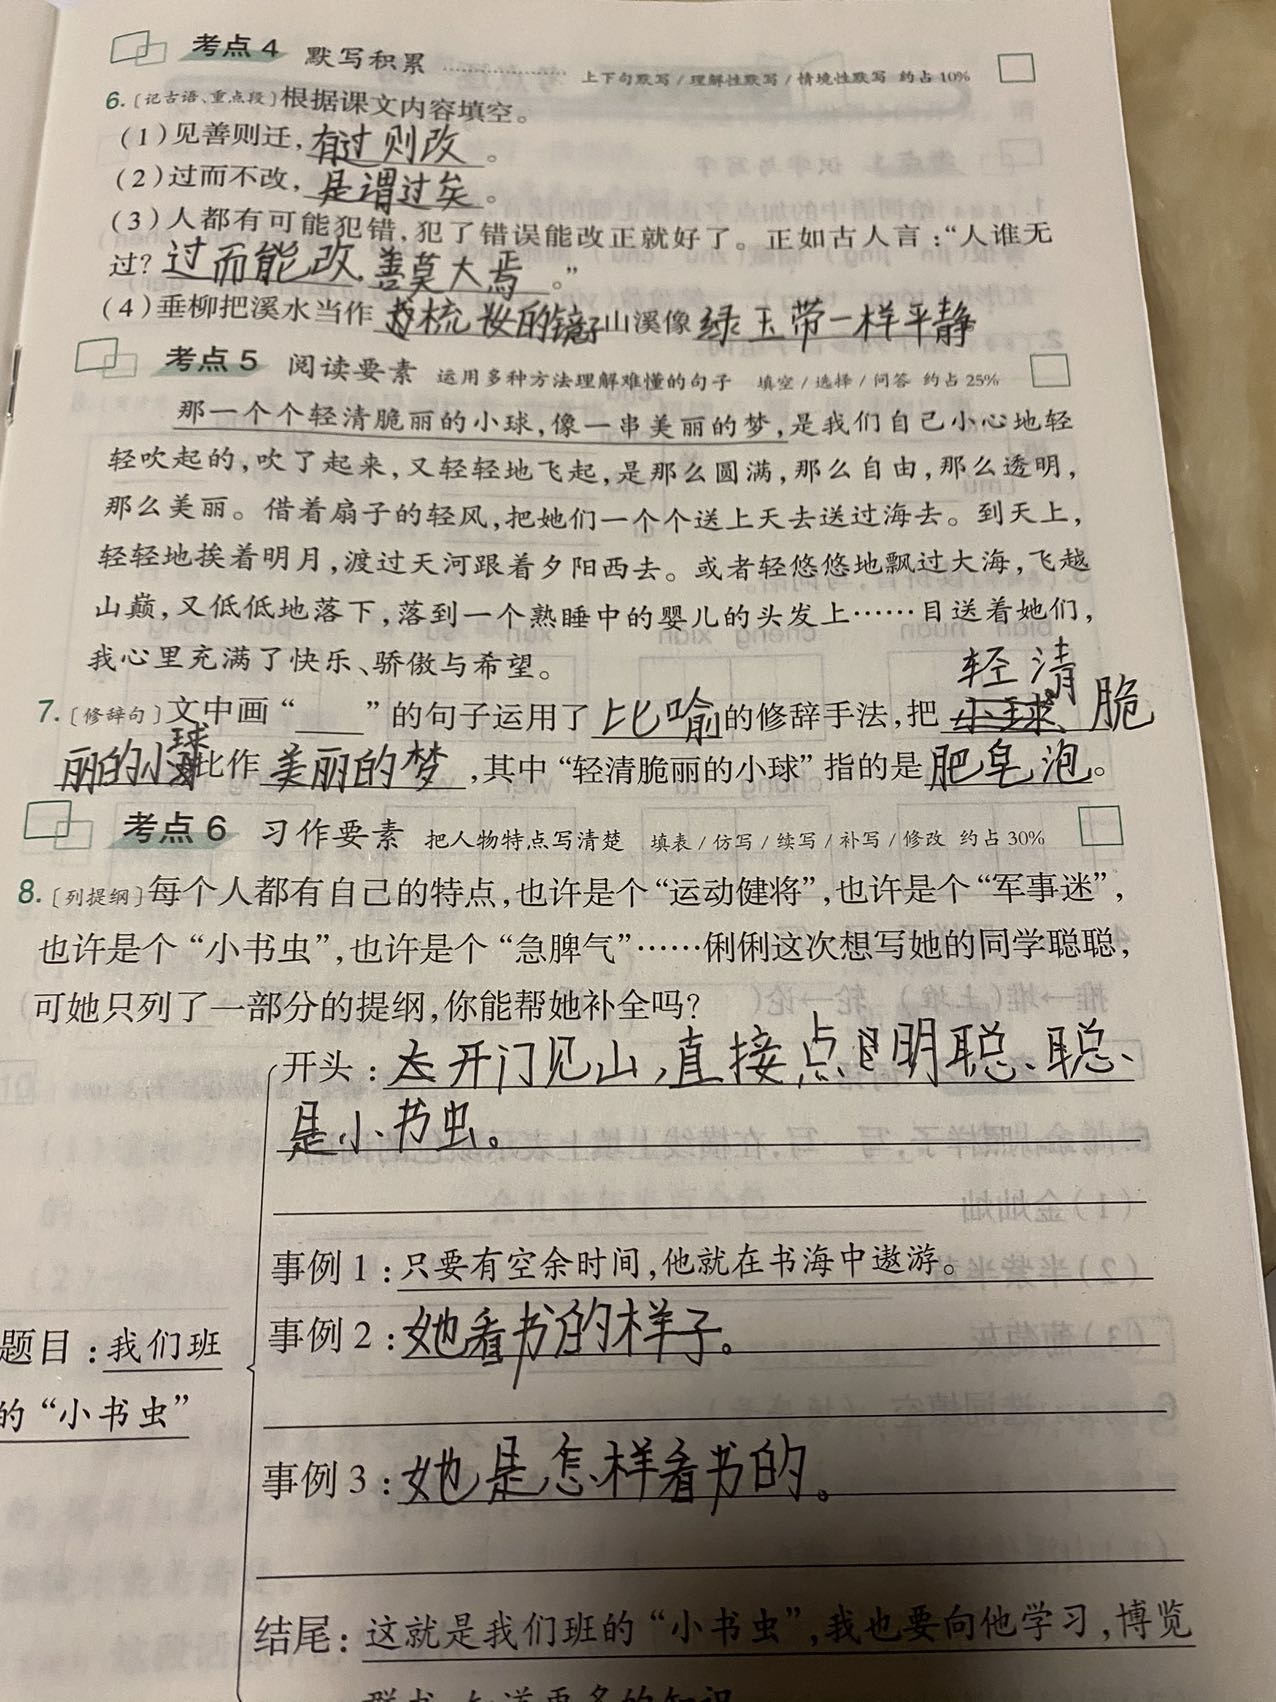 考点4 默写积累 ………… 上下句默写/理解性默写/情境性默写 约占10%
6.〔记古语、重点段〕根据课文内容填空。
(1)见善则迁,有过则改。
(2)过而不改,是谓过矣。
(3)人都有可能犯错,犯了错误能改正就好了。正如古人言:“人谁无
过?过而能改,善莫大焉。”
(4)垂柳把溪水当作梳妆的镜子山溪像绿玉带一样平静
考点5 阅读要素 运用多种方法理解难懂的句子 填空/选择/问答 约占25%
那一个个轻清脆丽的小球,像一串美丽的梦,是我们自己小心地轻
轻吹起的,吹了起来,又轻轻地飞起,是那么圆满,那么自由,那么透明,
那么美丽。借着扇子的轻风,把她们一个个送上天去送过海去。到天上,
轻轻地挨着明月,渡过天河跟着夕阳西去。或者轻悠悠地飘过大海,飞越
山巅,又低低地落下,落到一个熟睡中的婴儿的头发上……目送着她们,
我心里充满了快乐、骄傲与希望。
7.〔修辞句〕文中画“___”的句子运用了比喻的修辞手法,把轻清脆
丽的小球比作美丽的梦,其中“轻清脆丽的小球”指的是肥皂泡。
考点6 习作要素 把人物特点写清楚 填表/仿写/续写/补写/修改 约占30%
8.〔列提纲〕每个人都有自己的特点,也许是个“运动健将”,也许是个“军事迷”,
也许是个“小书虫”,也许是个“急脾气”……俐俐这次想写她的同学聪聪,
可她只列了一部分的提纲,你能帮她补全吗?
开头:开门见山,直接点明聪聪
是小书虫。
事例1:只要有空余时间,他就在书海中遨游。
事例2:她看书的样子。
题目:我们班
的“小书虫”
事例3:她是怎样看书的。
结尾:这就是我们班的“小书虫”,我也要向他学习,博览